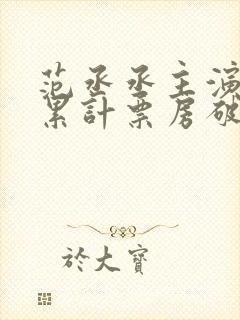 范丞丞主演
累計票房破
於大寶